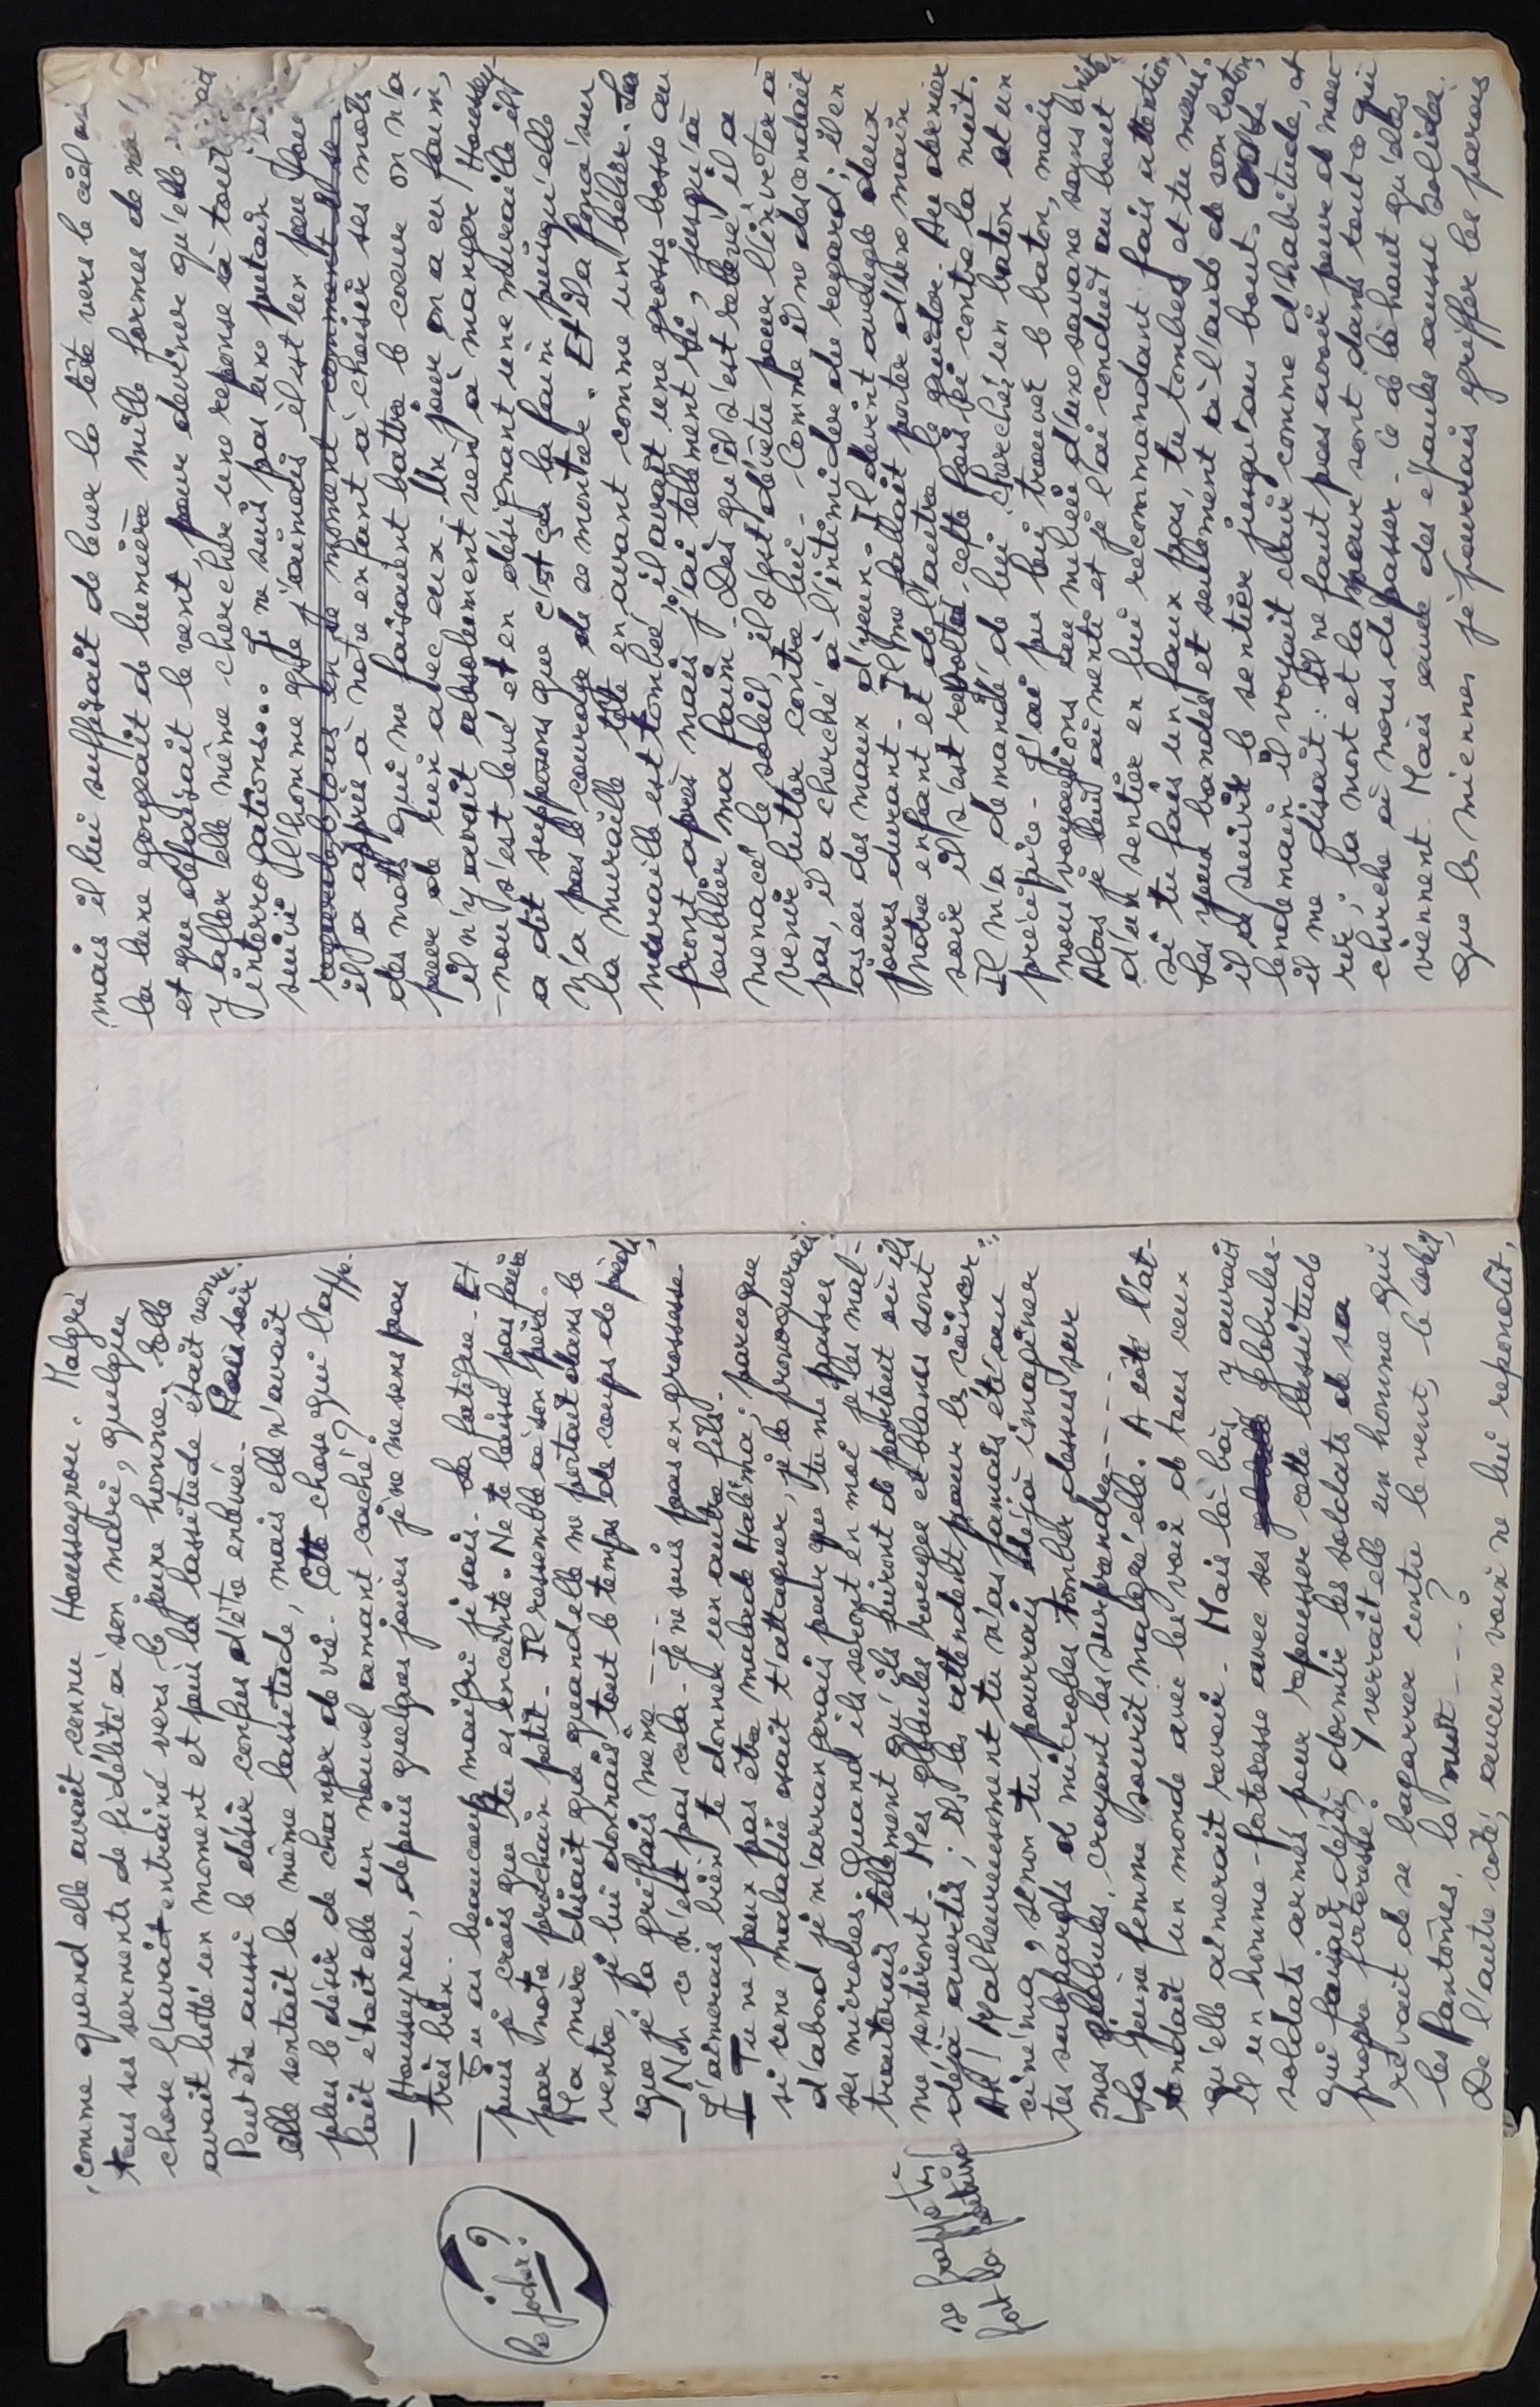 comme quand elle avait connu Housseynou. Malgré
tous ses serments de fidélité à son mari, quelque
chose l'avait entrainé vers le jeune homme. Elle
avait lutté un moment et puis la lassitude était venue.
Peut ête aussi le désir confus d'être enlevée. Ce soir
elle sentait la même lassitude, mais elle n'avait
plus le désir de changer de vie. Cette chose qui l'appe-
lait était elle un nouvel amant caché?
— Housseynou, depuis quelques jours je ne me sens pas
très bien.
— Tu as beaucoup maigri je sais. La fatigue. Et
puis je crois que tu es enceinte. Ne te laisse pas faire
par notre prochain petit. Il ressemble à son père.
Ma mère disait que quand elle me portait dans le
ventre, je lui donnais tout le temps de coups de pieds,
que je la griffais même ---
— Non ce n'est pas cela. Je ne suis pas en grossesse.
J'aimerais bien te donner un autre fils.
— Tu ne peux pas être malade Haléma; parce que
si une maladie osait t'attaquer, je la provoquerai
d'abord je m'arrangerais pour que tu me passes
ses microbes. Quand ils seront en moi je les mal-
traiterais tellement qu'ils fuiront de partout où ils
me sentiront. Mes globules rouges et blancs sont
déjà avertis; ils les attendent pour les coincer.
Ah! Malheureusement tu n'as jamais été au
cinéma, sinon tu pourrais déjà imaginer
tes salopards de microbes tomber dessus sur
mes globules, croyant les surprendre ----
se frappe très
fort la poitrine
le focher?
La jeune femme sourit malgré elle. A côté l'at-
tendait un monde avec les voix de tous ceux
qu'elle aimerait revoir. Mais là-bas, y aurait
il un homme-forteresse avec ses globules-
soldats armés pour repousser cette lassitude
qui faisait déjà dormir les soldats de sa
propre forteresse? Y verrait elle un homme qui
rêvait de se bagarrer contre le vent, le soleil,
les fantômes, la nuit ---?
De l'autre coté, aucune voix ne lui repondit,
mais il lui suffisait de lever la tête vers le ciel où
la lune gorgeait de lumière mille formes de
et que défaisait le vent, pour deviner qu'elle
y aller elle même chercher une reponse à tout
interrogations... Je ne suis pas une putain j'ai
suivi l'homme que j'aimais il est un peu fou
en ce moment comment il se
il a appris à notre enfant à choisir ses mots
des mots qui me faisaient battre le coeur on n'a
peur de rien avec eux. Un jour on a eu faim,
il n'y avait absolument rien à manger Houssey-
-nou s'est levé et en désignant une muraille il
a dit supposons que c'est ça la faim puisqu'elle
n'a pas le courage de se montrer. Et il a foncé sur
la muraille tête en avant comme un bélier. La
muraille est tombée, il avait une grosse bosse au
front après mais j'ai tellement ri, jusqu'à
oublier ma faim. Dès qu'il s'est relevé, il a
menacé le soleil, il s'est dévêtu pour l'inviter à
venir lutter contre lui. Comme il ne descendait
pas, il a cherché à l'intimider du regard; il en
a eu des maux d'yeux. Il devint aveugle deux
jours durant. Il me fallait porter d'une main
notre enfant et de l'autre le guider. Au dernier
soir il s'est révolté cette fois-ci contre la nuit.
Il m'a demandé de lui chercher un baton et un
précipice. J'ai pu lui trouver le baton, mais
nous voyagions au milieu d'une savane sans
Alors je lui ai menti et je l'ai conduit au bout
d'un sentier en lui recommandant fais attention,
si tu fais un faux pas, tu tombes et tu meurs.
Les yeux bandés et seulement à l'aide de son baton,
il a suivit le sentier jusqu'au bout.
lendemain il voyait clair comme d'habitude, et
il me disait: il ne faut pas avoir peur de mou-
rir; la mort et la peur sont dans tout ce qui
cherche à nous depasser. Ce de là haut qu'elles
viennent. Mais avec des épaules aussi solides
que les miennes je pourrais griffer les parois